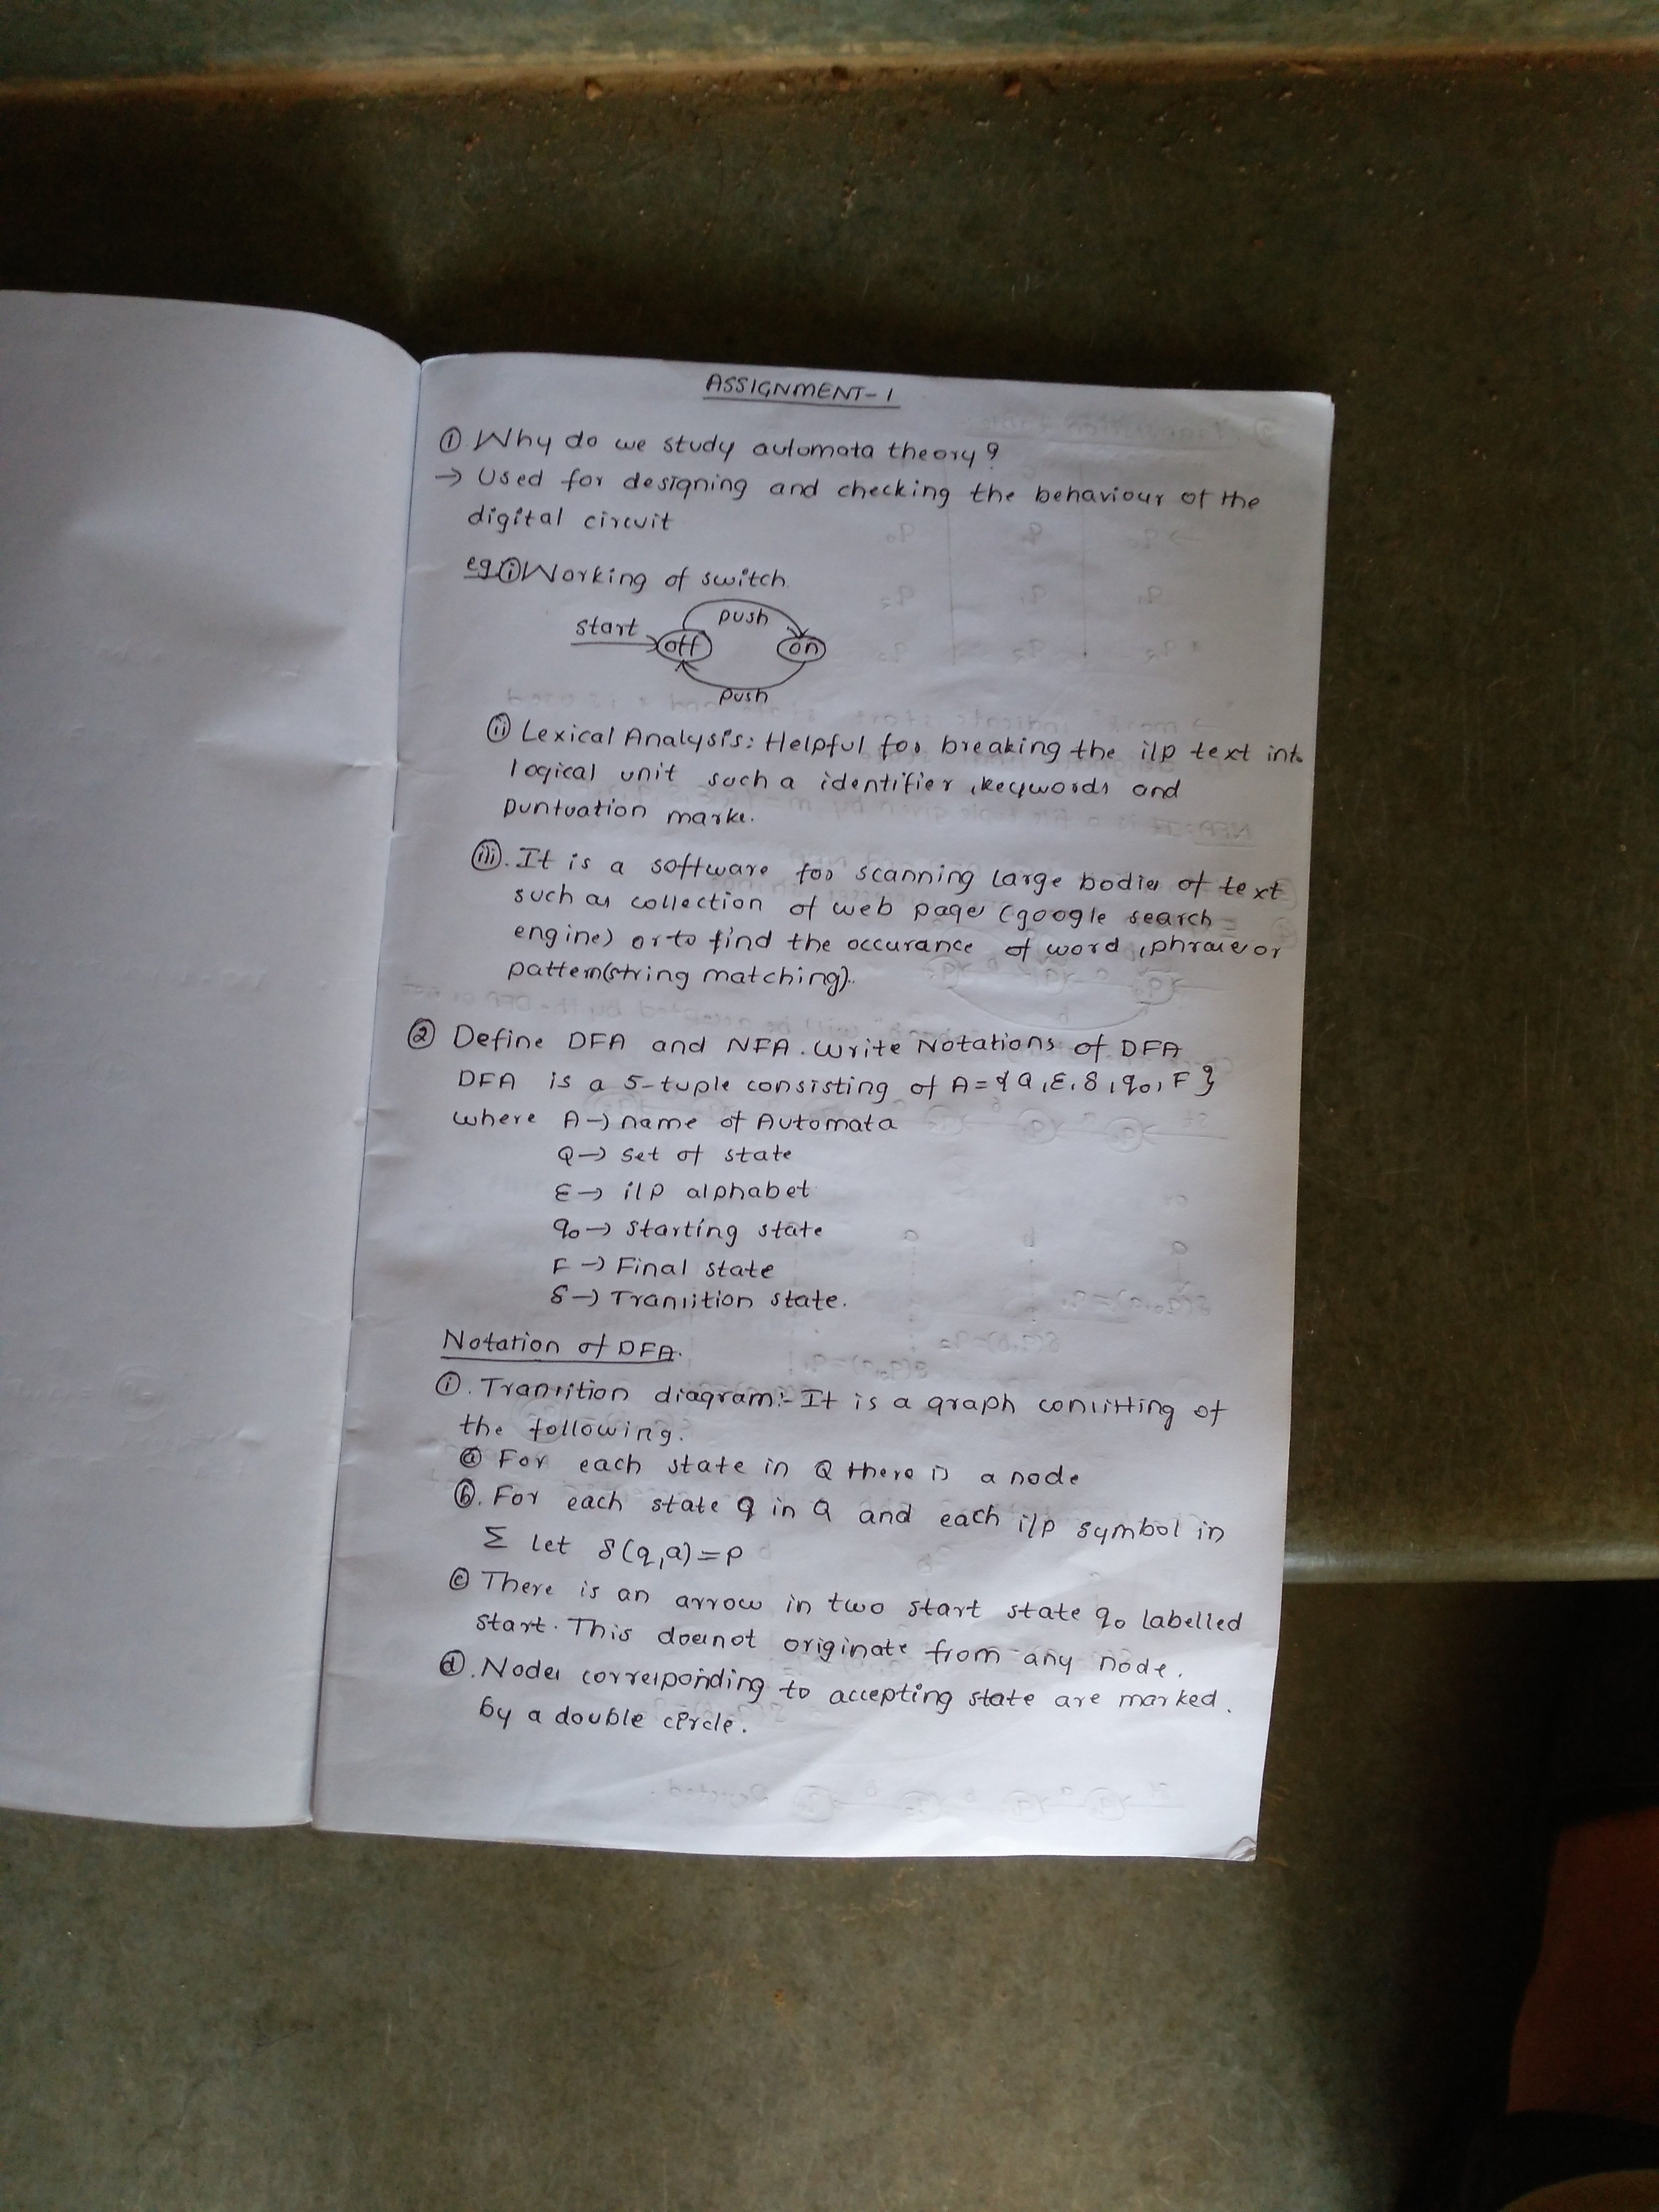 ASSIGNMENT-1
① Why do we study automata theory?
→ Used for designing and checking the behaviour of the
digital circuit
eg:ⓘ Working of switch.
push
start
off
on
push
ⓘⓘ Lexical Analysis: Helpful for breaking the i/p text into
logical unit such a identifier, keywords and
puntuation marks.
ⓘⓘⓘ. It is a software for scanning large bodies of text
such as collection of web pages (google search
engine) or to find the occurance of word, phrases or
pattern(string matching).
② Define DFA and NFA. Write Notations of DFA
DFA is a 5-tuple consisting of A={Q,Ɛ,δ,q₀,F}
where A→ name of Automata
Q→ set of state
Ɛ→ i/p alphabet
q₀→ starting state
F→ Final state
δ→ Transition state.
Notation of DFA.
ⓘ. Transition diagram:- It is a graph consisting of
the following.
ⓐ For each state in Q there is a node
ⓑ. For each state q in Q and each i/p symbol in
Σ let δ(q,a)=p
ⓒ There is an arrow in two start state q₀ labelled
start. This doesnot originate from any node.
ⓓ. Nodes corresponding to accepting state are marked.
by a double circle.